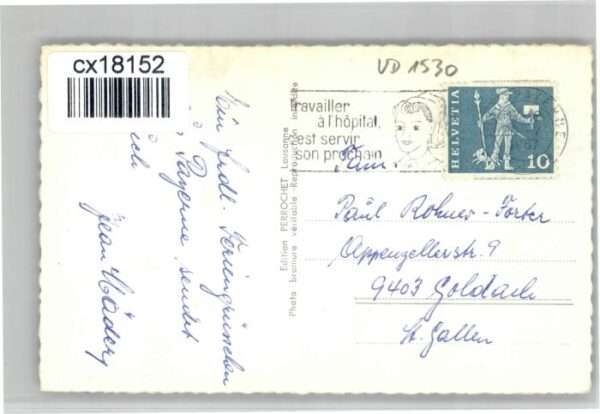 cx18152
VD 1530
Travailler
à l'hôpital,
c'est servir
son prochain
HELVETIA
10
Edition PERROCHET Lausanne
Photo bromure véritable - Reproduction interdite
Paul Rohner-Forter
Appenzellerstr. 9
9403 Goldach
St. Gallen
Feriengrüsschen
Payerne sendet
Jean Mädery